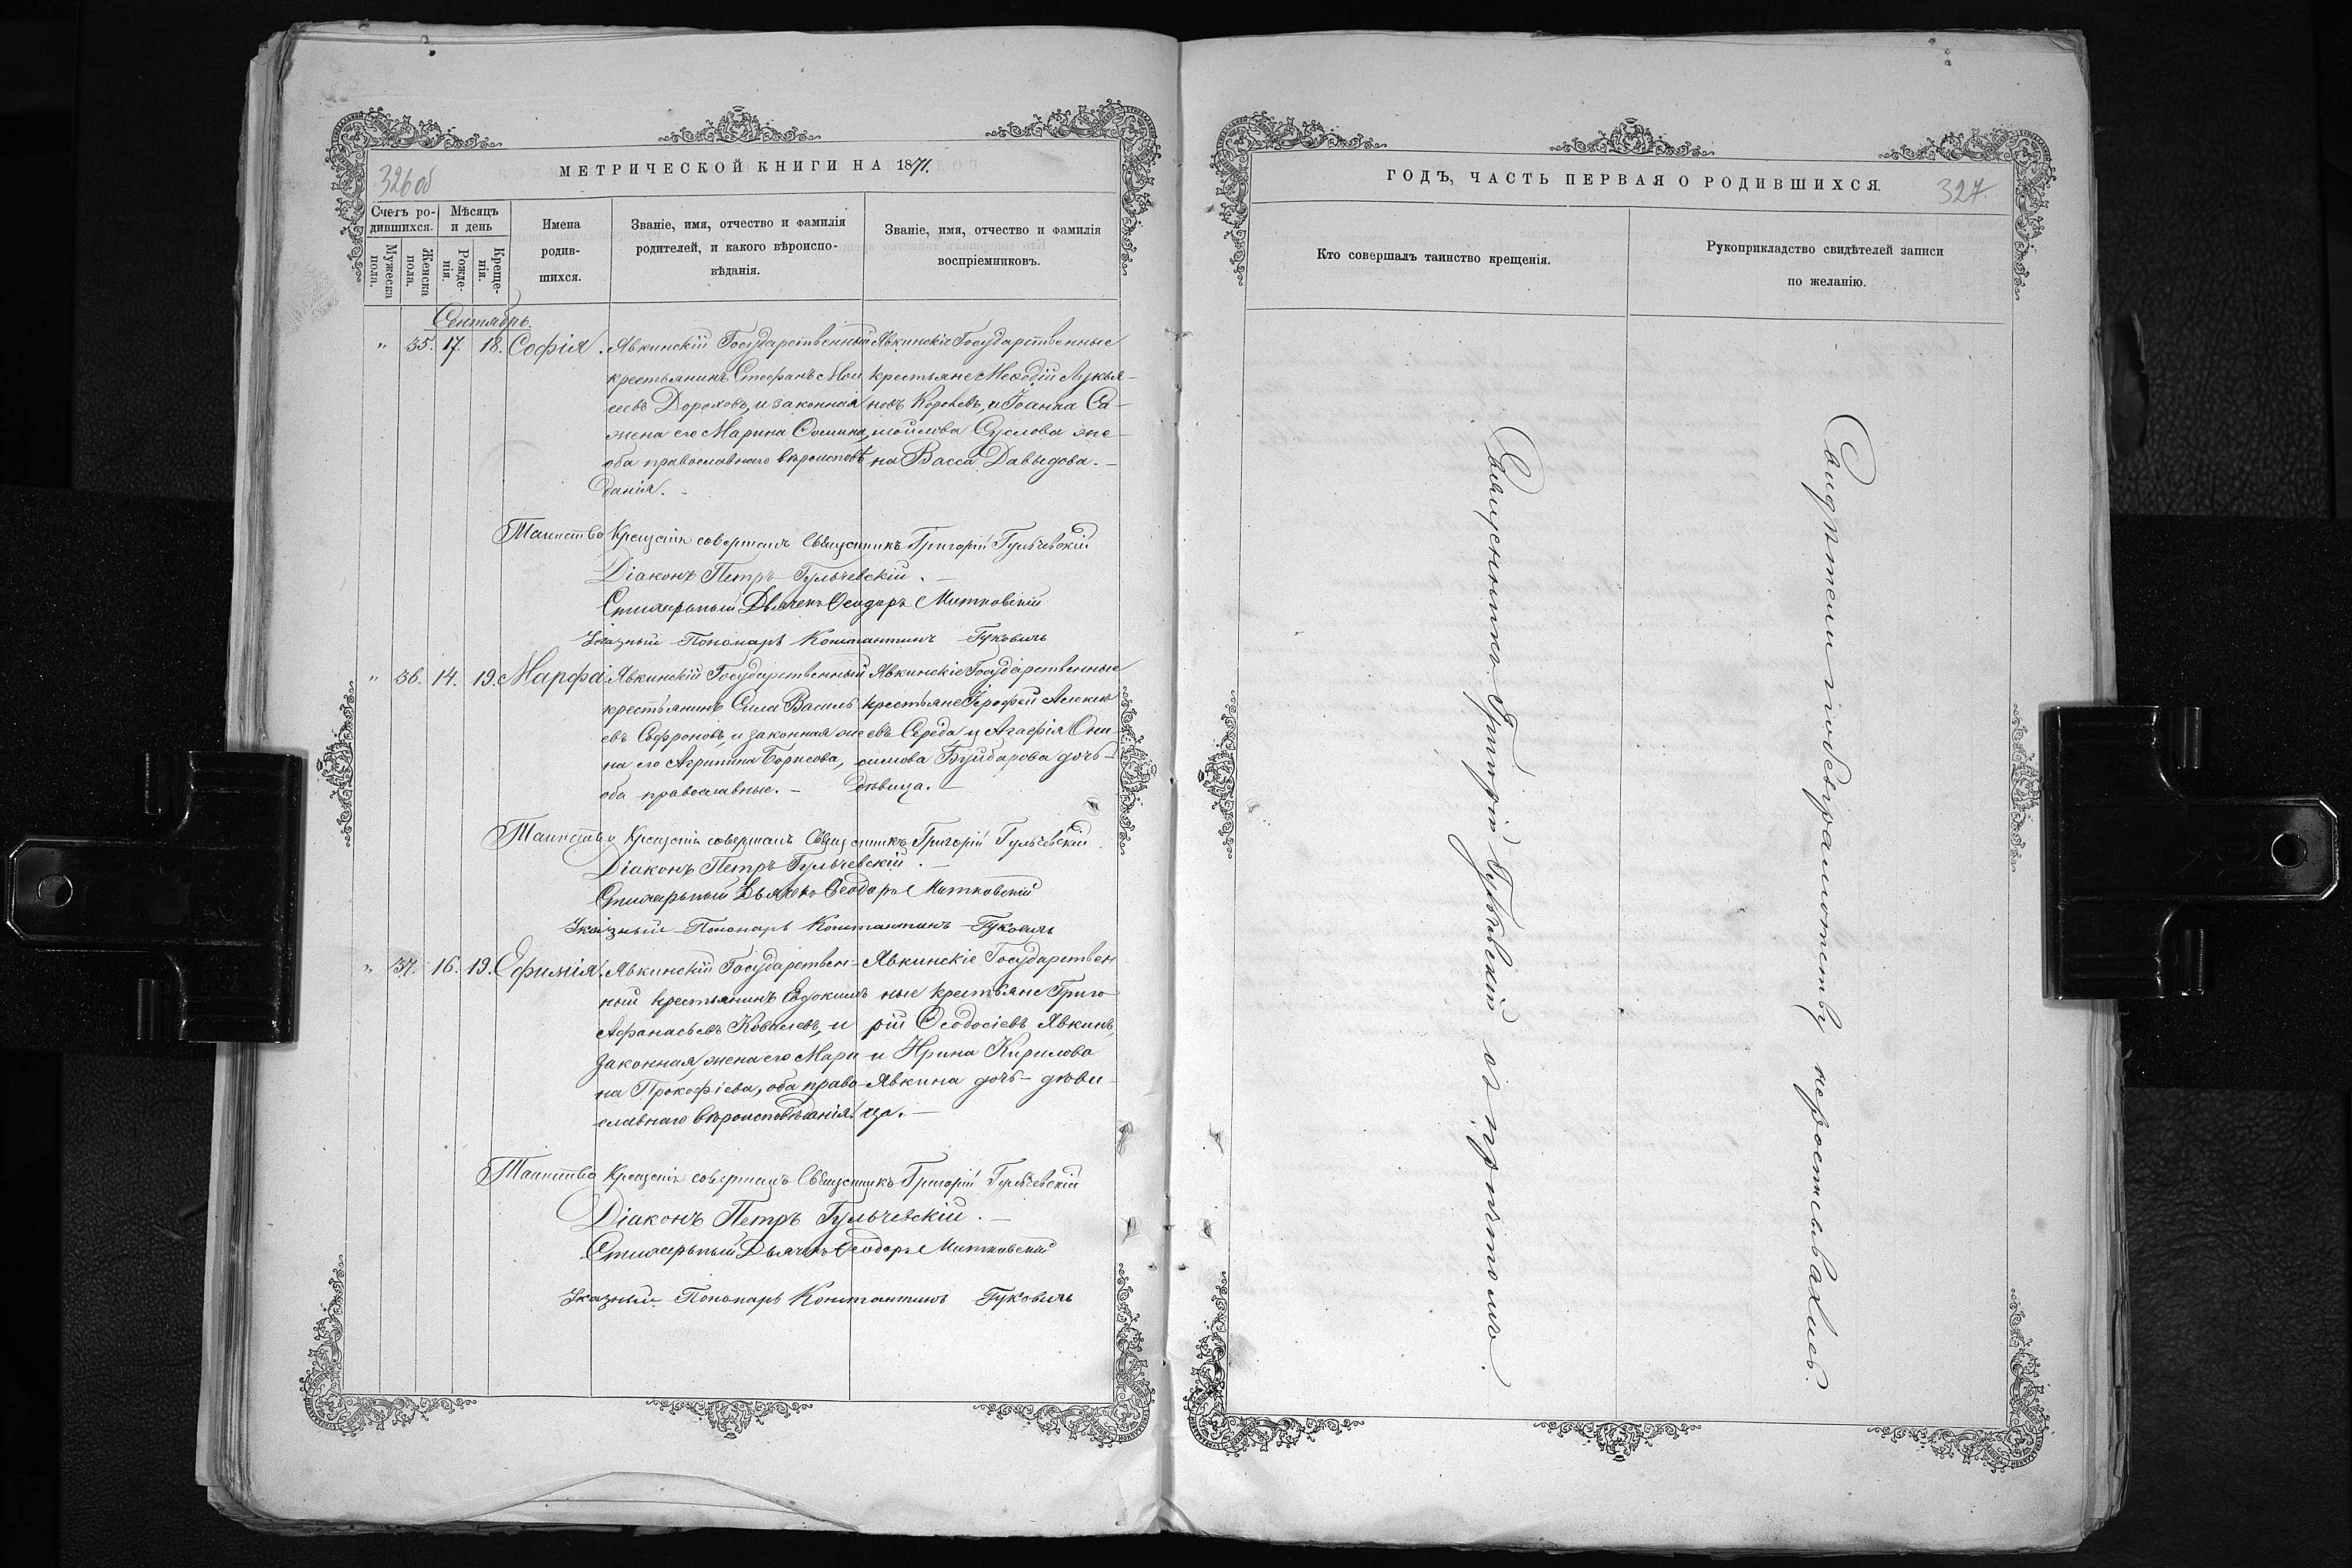 МЕТРИЧЕСКОЙ КНИГИ НА 1871.
326 об
Счетъ ро-
дившихся.
Мѣсяцъ
и день
Мужеска
пола.
Женска
пола.
Рожде-
нія.
Креще-
нія.
Имена
родив-
шихся.
Званіе, имя, отчество и фамилія
родителей, и какого вѣроиспо-
вѣданія.
Званіе, имя, отчество и фамилія
воспріемниковъ.
Сентябрь.
" 35. 17. 18. София.
Явкинскій Государственный
крестьянинъ Стефанъ Мои
сеевъ Дороховъ, и законная
жена его Марина Фомина,
оба православнаго вѣроисповѣ
данія.
Явкинскіе Государственные
крестьяне Меѳодій Лукья-
новъ Королевъ, и Іоанна Са-
мойлова Суслова же-
на Васса Давыдова.
Таинство Крещенія совершалъ Священникъ Григорій Гульчевскій
Діаконъ Петръ Гульчевскій.
Стихарный Дьячекъ Ѳеодоръ Митковскій
Указный Пономарь Константинъ Гуковичъ
" 36. 14. 19. Марфа.
Явкинскій Государственный
крестьянинъ Сила Василь
евъ Софроновъ, и законная же
на его Агрипина Борисова,
оба православные.
Явкинскіе Государственные
крестьяне Ерофей Алексѣ
евъ Середа и Агафія Они
симова Буйдарова дочь-
дѣвица.
Таинство Крещенія совершалъ Священникъ Григорій Гульчевскій
Діаконъ Петръ Гульчевскій.
Стихарный Дьячекъ Ѳеодоръ Митковскій
Указный Пономарь Константинъ Гуковичъ
" 37. 16. 19. Ефимія.
Явкинскій Государствен-
ный крестьянинъ Евдокимъ
Афанасьевъ Ковалевъ, и
законная жена его Мари
на Прокофіева, оба право
славнаго вѣроисповѣданія.
Явкинскіе Государствен
ные крестьяне Григо
рій Ѳеодосіевъ Явкинъ,
и Ирина Кирилова
Явкина дочь- дѣви-
ца.
Таинство Крещенія совершалъ Священникъ Григорій Гульчевскій
Діаконъ Петръ Гульчевскій.
Стихарный Дьячекъ Ѳеодоръ Митковскій
Указный Пономарь Константинъ Гуковичъ
ГОДЪ, ЧАСТЬ ПЕРВАЯ О РОДИВШИХСЯ.
327.
Кто совершалъ таинство крещенія.
Рукоприкладство свидѣтелей записи
по желанію.
Священникъ Григорій Гульчевскій съ причтомъ.
Свидѣтели по безграмотству нерасписывались.